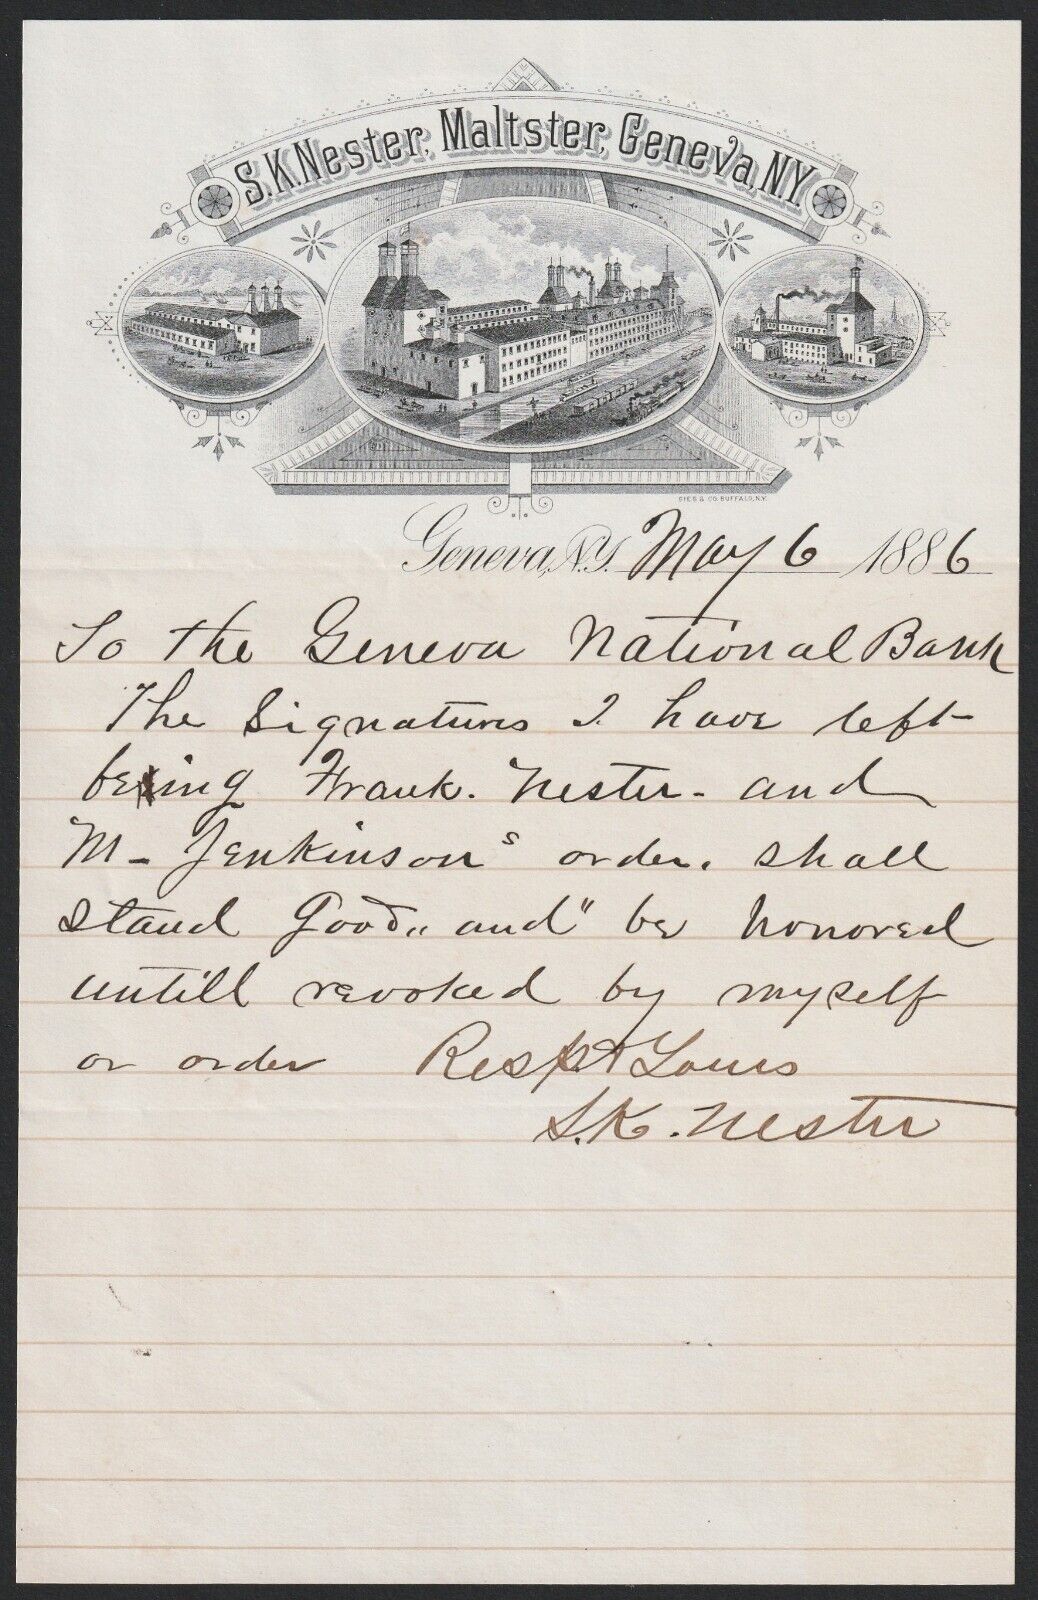 S.K. Nester, Maltster, Geneva, N.Y.
GIES & CO. BUFFALO, N.Y.
Geneva, N.Y. May 6 1886
To the Geneva National Bank
The Signatures I have left
being Frank. Nester - and
M - Jenkinsons order. shall
stand Good „ and " be honored
untill revoked by myself
or order Respt Yours
S.K. Nester